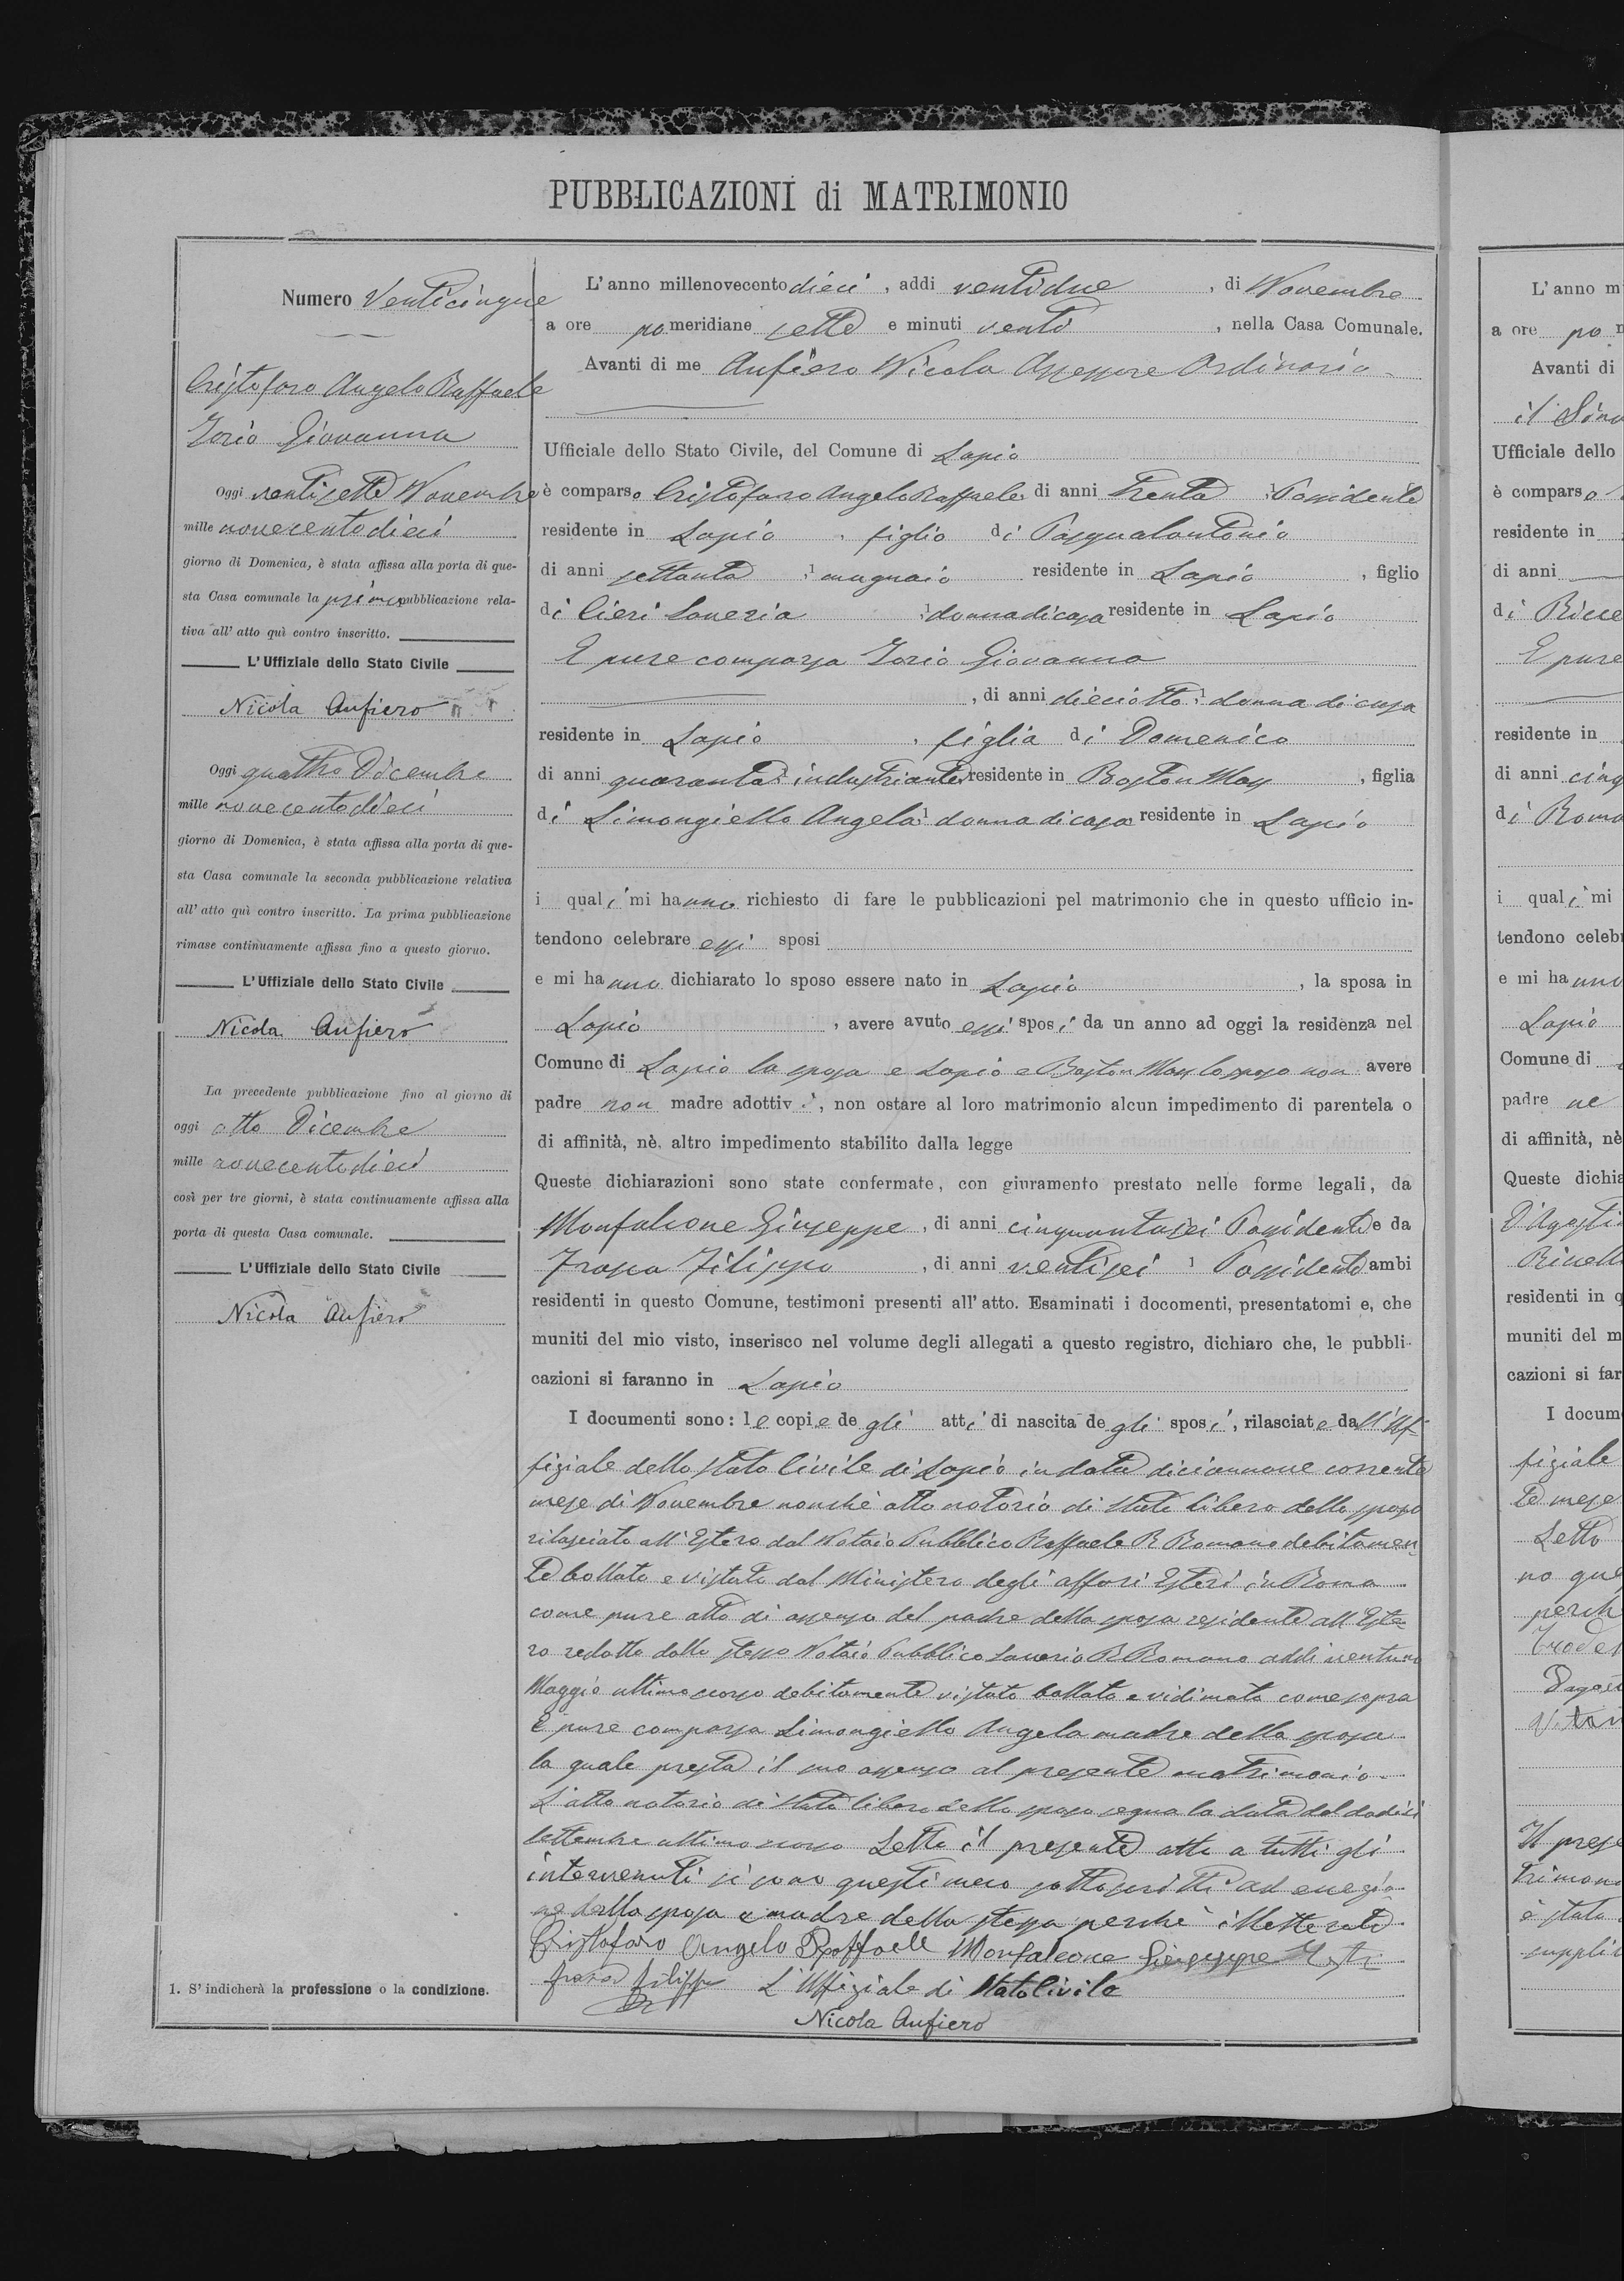 PUBBLICAZIONI di MATRIMONIO
Numero Venticinque
Cristofaro Angelo Raffaele
Iorio Giovanna
Oggi ventisette Novembre
mille novecentodieci
giorno di Domenica, è stata affissa alla porta di que-
sta Casa comunale la prima pubblicazione rela-
tiva all' atto quì contro inscritto.
L' Uffiziale dello Stato Civile
Nicola Aufiero
Oggi quattro Dicembre
mille novecentodieci
giorno di Domenica, è stata affissa alla porta di que-
sta Casa comunale la seconda pubblicazione relativa
all' atto quì contro inscritto. La prima pubblicazione
rimase continuamente affissa fino a questo giorno.
L' Uffiziale dello Stato Civile
Nicola Aufiero
La precedente pubblicazione fino al giorno di
oggi otto Dicembre
mille novecentodieci
così per tre giorni, è stata continuamente affissa alla
porta di questa Casa comunale.
L' Uffiziale dello Stato Civile
Nicola Aufiero
1. S' indicherà la professione o la condizione.
L' anno millenovecento dieci , addi ventidue , di Novembre
a ore po meridiane sette e minuti venti , nella Casa Comunale.
Avanti di me Aufiero Nicola Assessore Ordinario
Ufficiale dello Stato Civile, del Comune di Lapio
è comparso Cristofaro Angelo Raffaele di anni Trenta 1 Possidente
residente in Lapio , figlio di Pasqualantonio
di anni settanta 1 mugnaio residente in Lapio , figlio
di Cieri Saveria 1 donna di casa residente in Lapio
E pure comparsa Iorio Giovanna
, di anni dieciotto 1 donna di casa
residente in Lapio , figlia di Domenico
di anni quaranta 1 industriante residente in Boston Mass , figlia
di Limongiello Angela 1 donna di casa residente in Lapio
i quali mi hanno richiesto di fare le pubblicazioni pel matrimonio che in questo ufficio in-
tendono celebrare essi sposi
e mi hanno dichiarato lo sposo essere nato in Lapio , la sposa in
Lapio , avere avuto essi sposi da un anno ad oggi la residenza nel
Comune di Lapio la sposa e Lapio e Boston Mass lo sposo non avere
padre non madre adottivi, non ostare al loro matrimonio alcun impedimento di parentela o
di affinità, nè altro impedimento stabilito dalla legge
Queste dichiarazioni sono state confermate, con giuramento prestato nelle forme legali, da
Monfalcone Giuseppe , di anni cinquantasei Possidente e da
Filippo , di anni ventisei 1 Possidente ambi
residenti in questo Comune, testimoni presenti all' atto. Esaminati i documenti, presentatomi e, che
muniti del mio visto, inserisco nel volume degli allegati a questo registro, dichiaro che, le pubbli-
cazioni si faranno in Lapio
I documenti sono: le copie degli atti di nascita degli sposi, rilasciate dall'Uf-
fiziale dello Stato Civile di Lapio in data diciannove corrente
mese di Novembre nonchè atto notorio di stato libero dello sposo
rilasciato all'Estero dal Notaio Pubblico Raffaele R Romano debitamen-
te bollato e vistato dal Ministero degli affari Esteri in Roma
come pure atto di assenso del padre della sposa residente all'Este-
ro redatto dallo stesso Notaio Pubblico Saverio R Romano addi ventuno
Maggio ultimo scorso debitamente vistato bollato e vidimato come sopra
E pure comparsa Limongiello Angela madre della sposa
la quale presta il suo assenso al presente matrimonio.
L'atto notorio di stato libero dello sposo segna la data del dodici
Settembre ultimo scorso Letto il presente atto a tutti gli
intervenuti si sono questi meco sottoscritti ad eccezio-
ne della sposa e madre della stessa perchè illetterate
Cristofaro Angelo Raffaele Monfalcone Giuseppe
Filippo L'Uffiziale di Stato Civile
Nicola Aufiero
L' anno m
a ore po
Avanti di
il Sind
Ufficiale dello
è comparso
residente in
di anni
di Ricce
E pure
residente in
di anni cinq
di Roma
i quali mi
tendono celebr
e mi hanno
Lapio
Comune di
padre ne
di affinità, nè
Queste dichia
D'Agosti
residenti in q
muniti del m
cazioni si far
I docum
fiziale
te mese
Letto
no que
perch
Il prese
trimoni
è stato
suppli